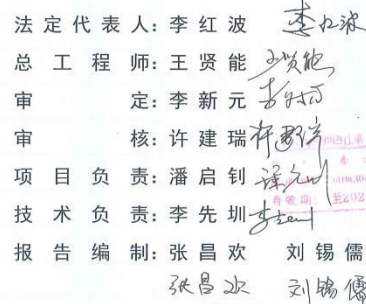 法定代表人：李红波 李红波
总工程师：王贤能 王贤能
审定：李新元
审核：许建瑞 许建瑞
项目负责：潘启钊
技术负责：李先圳
报告编制：张昌欢 刘锡儒
张昌欢 刘锡儒